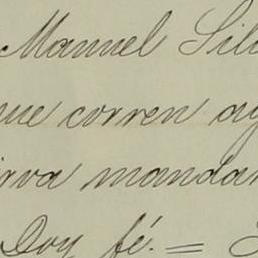 Manuel Sil
que corren ag
irva mandar
Doy fé. =